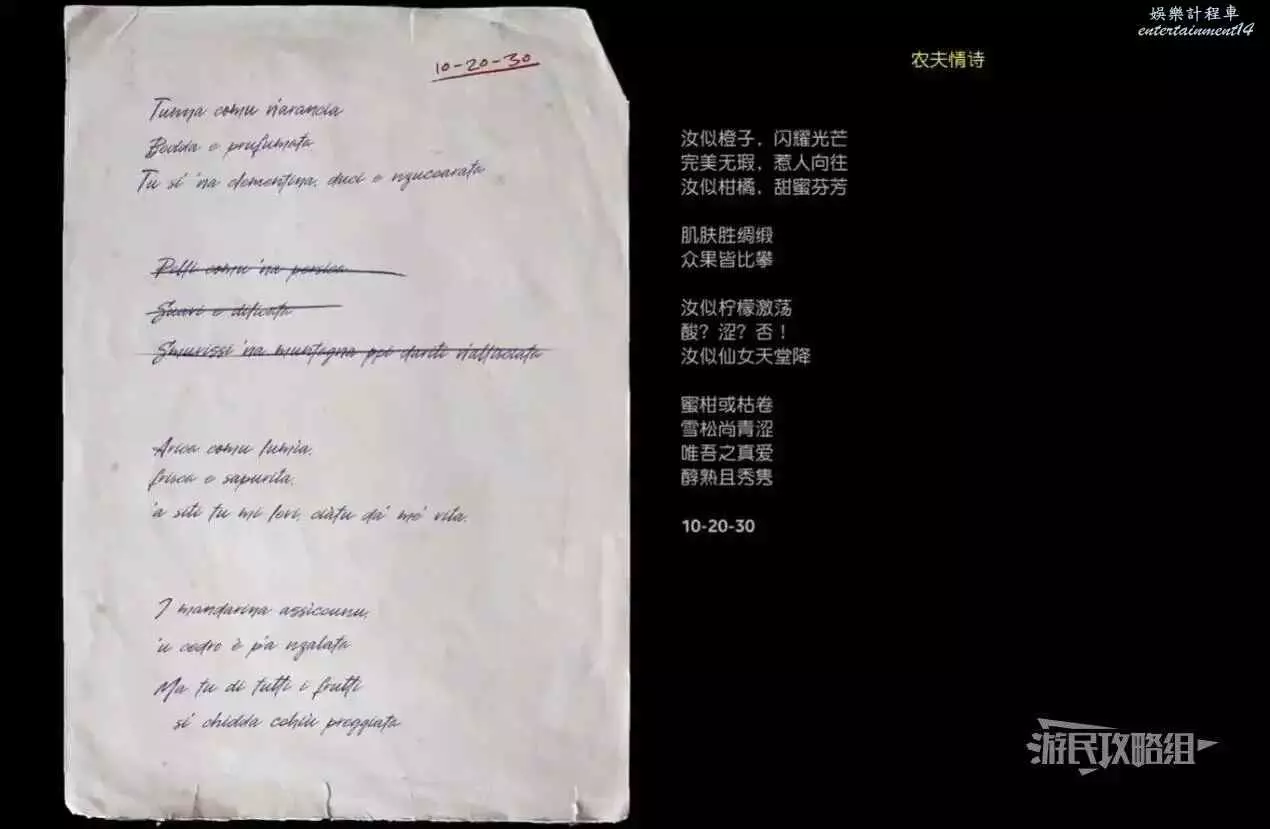 娛樂計程車
entertainment14
10-20-30
Tunna comu n'arancia
Bedda e prufumata
Tu si 'na clementina, duci e nzuccarata
Pilusi comu 'na persica
Suavi e dilicata
Smurissi 'na muntagna ppi dariti n'alfaciata
Arisa comu lumia,
frisca e sapurita,
'a siti tu mi levi, ciàtu da' me' vita.
I mandarina assiccunu,
'u cedro è p'a nzalata
Ma tu di tutti i frutti
si' chidda cchiù preggiata
农夫情诗
汝似橙子，闪耀光芒
完美无瑕，惹人向往
汝似柑橘，甜蜜芬芳
肌肤胜绸缎
众果皆比攀
汝似柠檬激荡
酸？涩？否！
汝似仙女天堂降
蜜柑或枯卷
雪松尚青涩
唯吾之真爱
醇熟且秀隽
10-20-30
游民攻略组